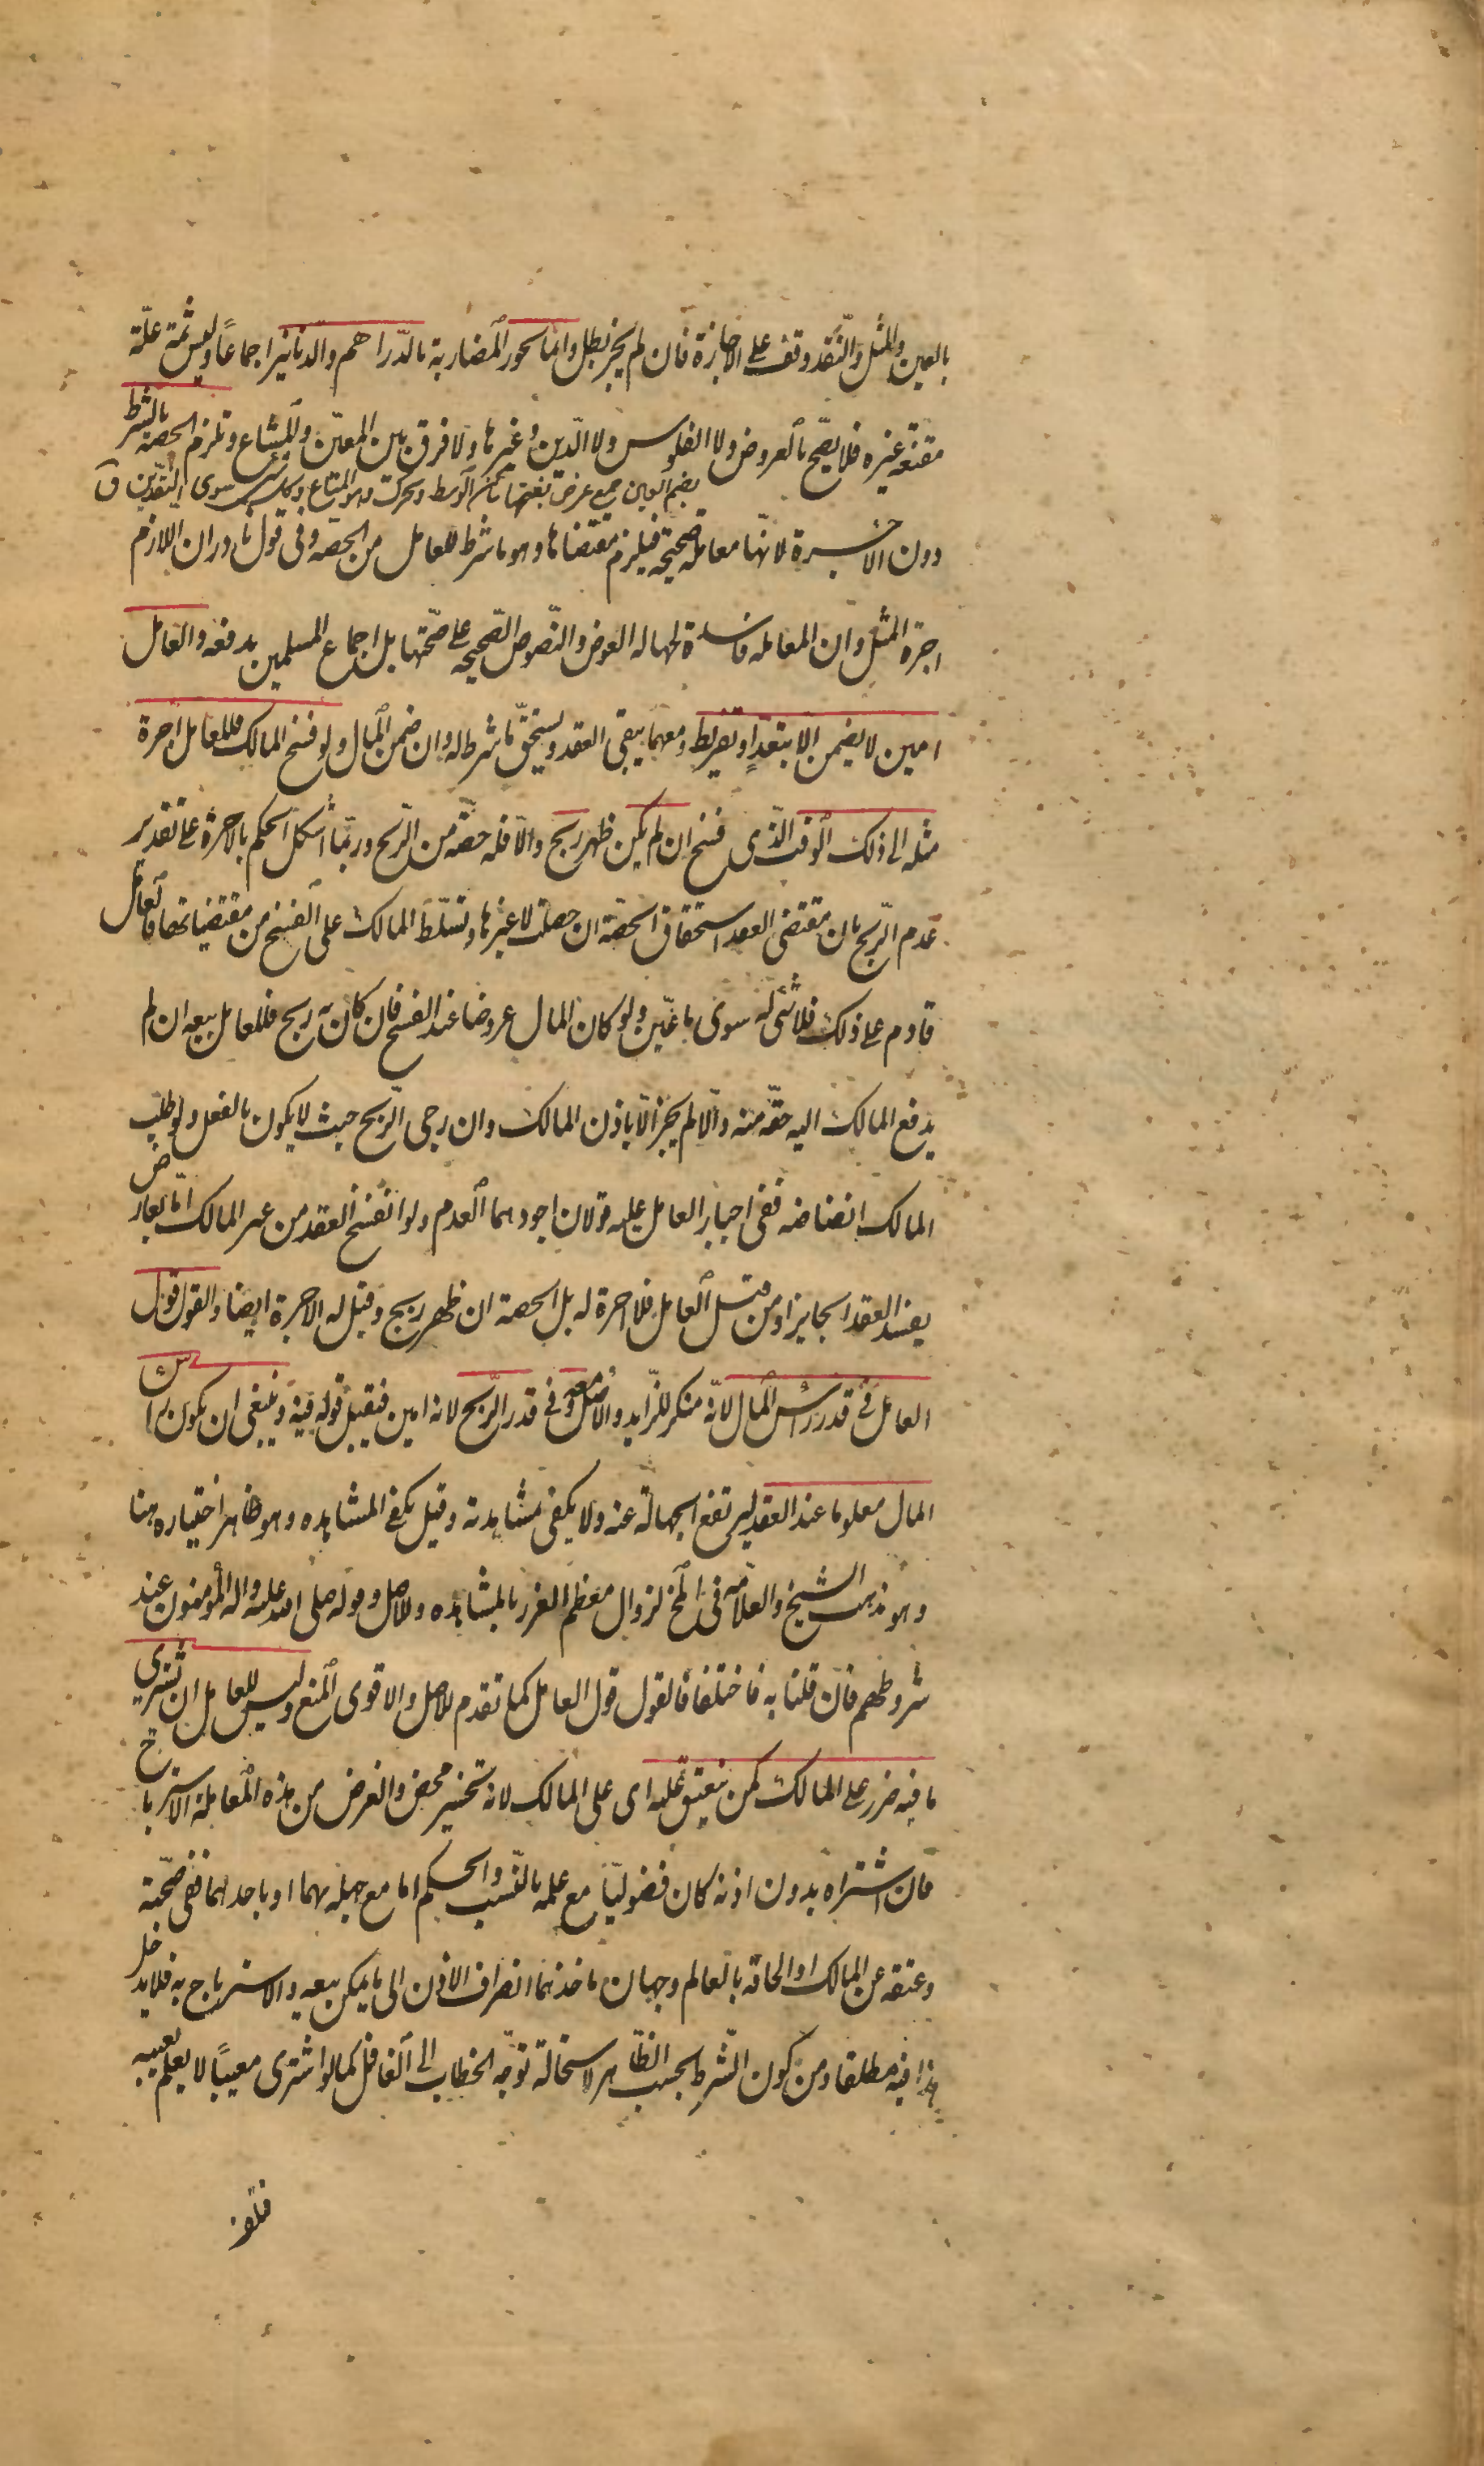 بالعين والمثل والنّقد وقف على الاجازة فان لم يجز بطل وانما تجوز المضاربة بالدّراهم والدّنانير اجماعاً وليس ثمة علّة
مقنعة غيره فلا يصّح بالعروض ولا الفلوس ولا الدّين وغيرها ولا فرق بين المعيّن والمشاع وتلزم الحصة بالشرط
بضم العين جمع عرض بفتحها ساكن الوسط ويحرك وهو المتاع وكل شئ سوى النقدين ق
دون الاجرة لانّها معاملة صحيحة فيلزم مقتضاها وهو ما شرط للعامل من الحصّه وفى قول نادر ان اللازم
اجرة المثل وان المعامله فاسدة لجهاله العوض والنّصوص الصّحيحه على صحّتها بل اجماع المسلمين يدفعه والعامل
امين لا يضمن الّا بتعدٍّ او تفريط ومعهما يبقى العقد ويستحقّ ما شرط له وان ضمن المال ولو فسخ المالك فللعامل اجرة
مثله الى ذلك الوقت الّذى فسخ ان لم يكن ظهر ربح والّا فله حصّه من الرّبح وربّما اشكل الحكم بالاجرة على تقدير
عدم الرّبح بان مقتضى العقد استحقاق الحصّة ان حصلت لا غيرها وتسلّط المالك على الفسخ من مقتضياتها فالعامل
قادم على ذلك فلا شئ له سوى ما عيّن ولو كان المال عروضا عند الفسخ فان كان به ربح فللعامل بيعه ان لم
يدفع المالك اليه حقّه منه والّا لم يجز الّا باذن المالك وان رجى الرّبح حيث لا يكون بالفعل ولو طلب
المالك انضاضه ففى اجبار العامل عليه قولان اجودهما العدم ولو انفسخ العقد من غير المالك امّا بعارض
يفسد العقد الجايز او من قبل العامل فلا اجرة له بل الحصة ان ظهر ربح وقيل له الاجرة ايضا والقول قول
العامل فى قدر راس المال لانّه منكر للزّايد والاصل معه وفى قدر الرّبح لانه امين فيقبل قوله فيه وينبغى ان يكون راس
المال معلوما عند العقد ليرتفع الجهالة عنه ولا يكفى مشاهدته وقيل يكفى المشاهده وهو ظاهر اختياره هنا
وهو مذهب الشيخ والعلّامه فى المخ لزوال معظم الغرر بالمشاهده وللاصل وقوله صلى الله عليه واله المؤمنون عند
شروطهم فان قلنا به فاختلفا فالقول قول العامل كما تقدم للاصل والاقوى المنع وليس للعامل ان يشترى
ما فيه ضرر على المالك كمن ينعتق عليه اى على المالك لانه تخسير محض والغرض من هذه المعاملة الاسترباح
فان اشتراه بدون اذنه كان فضوليّا مع علمه بالنّسب والحكم اما مع جهله بهما او باحدهما ففى صحّته
وعتقه عن المالك او الحاقه بالعالم وجهان ماخذهما انصراف الاذن الى ما يمكن بيعه والاسترباح به فلا يدخل
هذا فيه مطلقا ومن كون الشّرط بحسب الظّاهر لاستحالة توجّه الخطاب الى الغافل كما لو اشترى معيباً لا يعلم بعيبه
فتلف